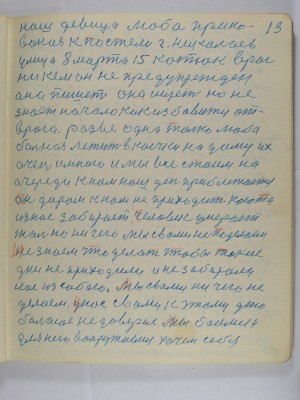 13
наш девица моба прико-
вана к постели г. Николаев
улица 8 марта 15 котюк враг
ни кем он не предупрежден
она пишет она ищет но не
знает начало как избавити от
врага. разве одна только
больная лежит в койки на дому их
очен много и мы все стоим на
очереди к нам наш ден приближаети
он даром к нам не приходит кого то
из нас забирает человик умерает
жал но ни чего мы с вами не
не знаем что делат чтобы такие
дни не приходили и не забирали
нас из собою. мы с вами ни чего не
делаем. у нас с вами к этому дню
болшое не доверие мы боимся
для него вооружаемы хочем себя